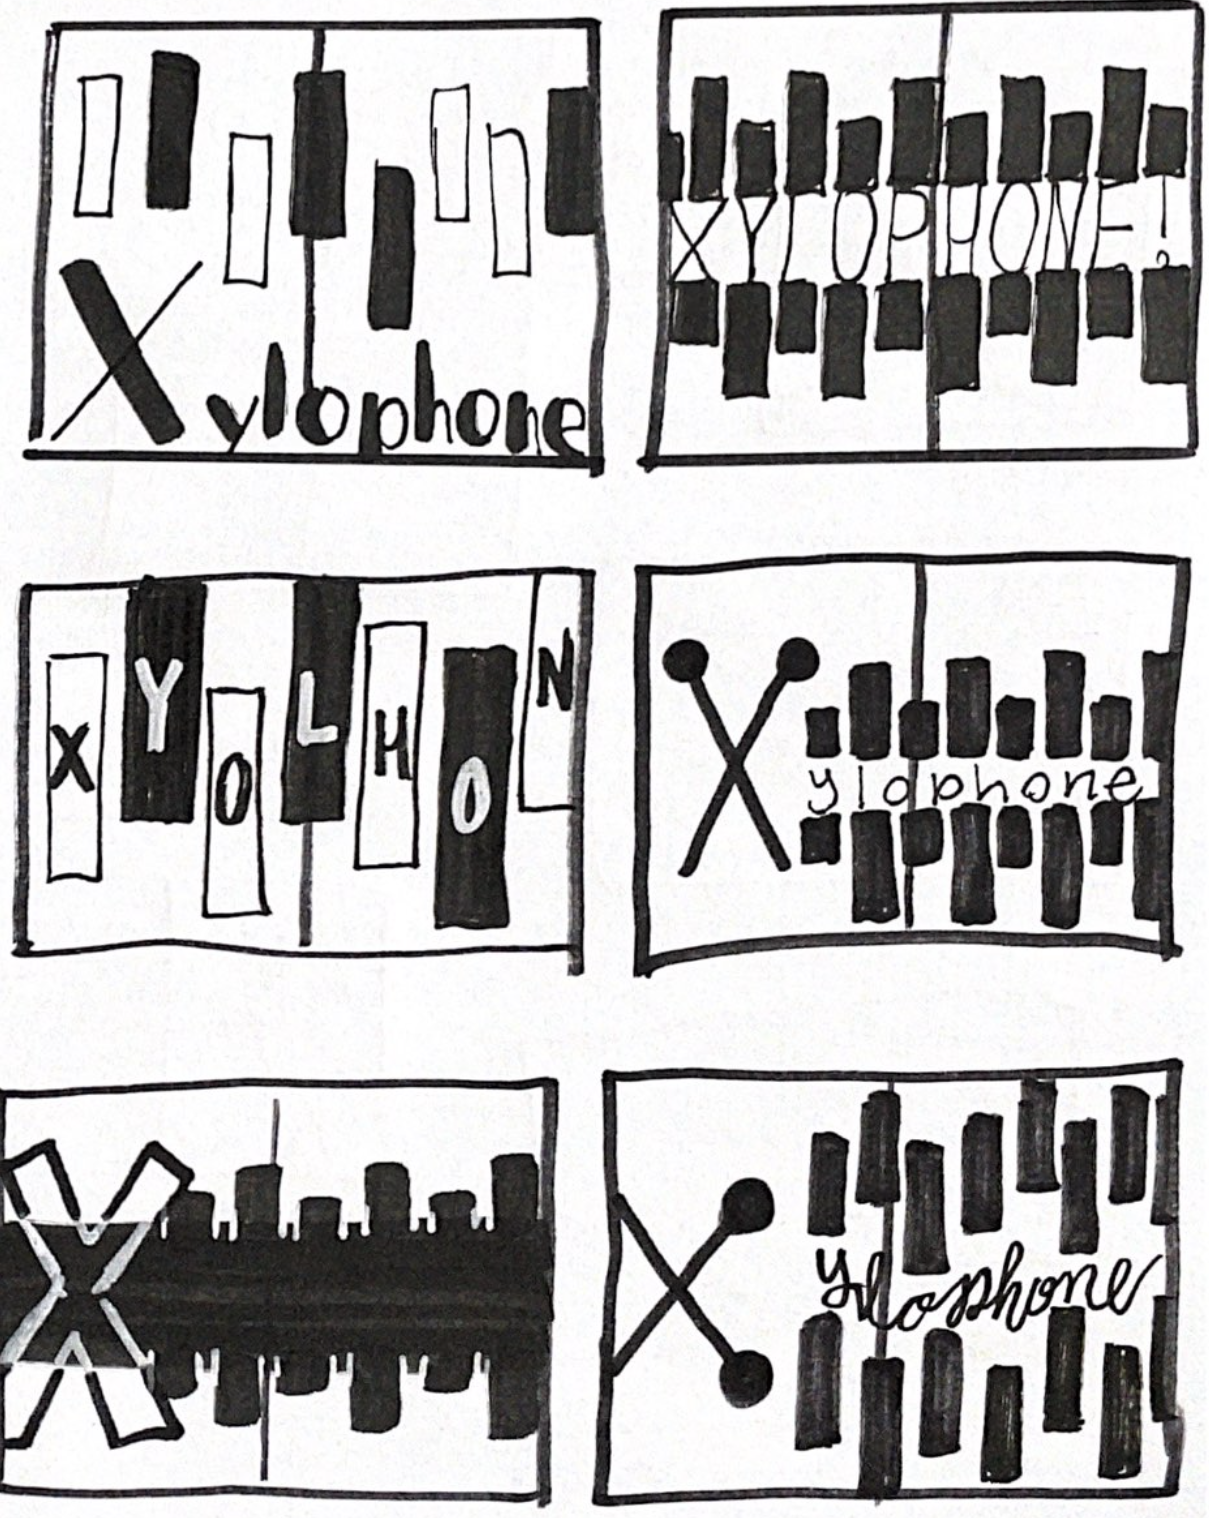 Xylophone
XYLOPHONE!
XYOLHON
Xylophone
X
Xylophone